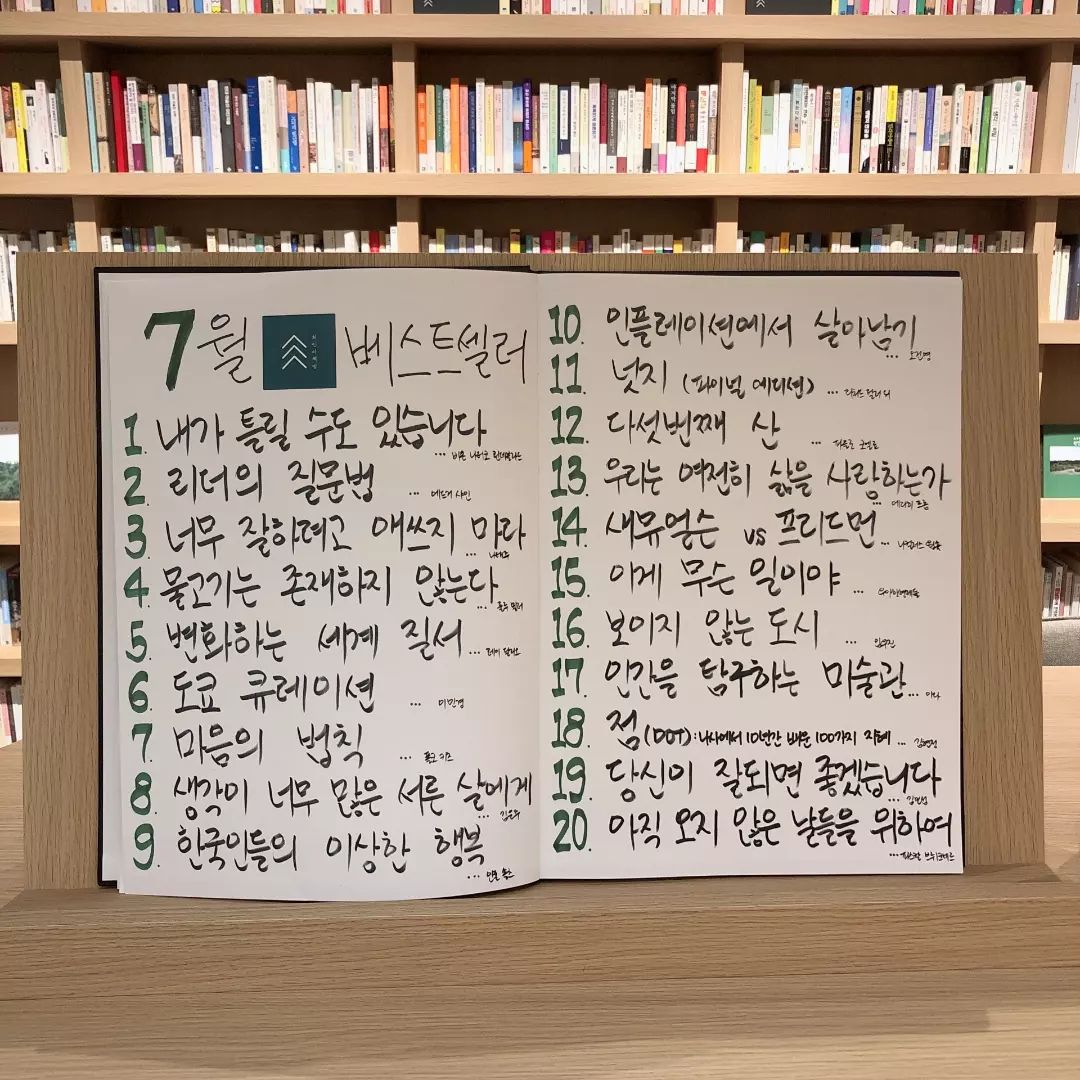 7월 베스트셀러
1. 내가 틀릴 수도 있습니다
... 비욘 나티코 린데블라드
2. 리더의 질문법 ... 에드거 샤인
3. 너무 잘하려고 애쓰지 마라
... 나태주
4. 물고기는 존재하지 않는다
... 룰루 밀러
5. 변화하는 세계 질서 ... 레이 달리오
6. 도쿄 큐레이션 ... 이민경
7. 마음의 법칙 ... 폴커 키츠
8. 생각이 너무 많은 서른 살에게
... 김은주
9. 한국인들의 이상한 행복
... 안톤 숄츠
10. 인플레이션에서 살아남기
... 오건영
11. 넛지 (파이널 에디션) ... 리처드 탈러 외
12. 다섯번째 산 ... 파울로 코엘료
13. 우리는 여전히 삶을 사랑하는가
... 에리히 프롬
14. 새뮤얼슨 vs 프리드먼 ... 니컬러스 웝숏
15. 이게 무슨 일이야 ...
16. 보이지 않는 도시 ... 임우진
17. 인간을 탐구하는 미술관 ... 이다
18. 점(DOT): 나사에서 10년간 배운 100가지 지혜 ...
19. 당신이 잘되면 좋겠습니다
... 김민섭
20. 아직 오지 않은 날들을 위하여
... 파스칼 브뤼크네르